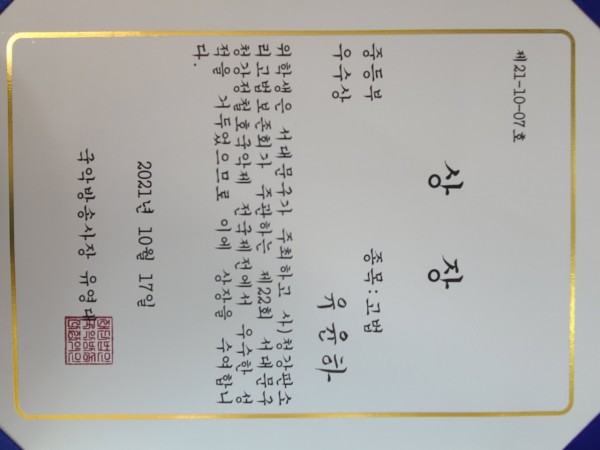 제 21-10-07 호
상 장
중등부 종목 : 고법
우수상 유윤하
위 학생은 서대문구가 주최하고 사)청강판소
리고법보존회가 주관하는 제22회 서대문구
청강정철호국악제 전국제전에서 우수한 성
적을 거두었으므로 이에 상장을 수여합니
다.
2021년 10월 17일
국악방송사장 유영대